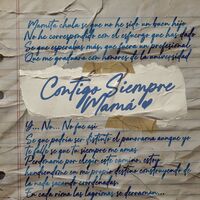 Mamita chula se que no he sido un buen hijo
No he correspondido con el esfuerzo que has dado
Se que esperabas más que fuera un profesional
Que me graduara con honores de la universidad
Contigo Siempre
Mamá
Y... No... No fue así
Se que podría ser distinto el panorama aunque yo
le falle se que tu siempre me amas
Perdoname por elegir este camino, estoy
hundiendome en mi propio destino construyendo de
la nada sacando coordenadas.
En cada rima las lagrimas se derraman...